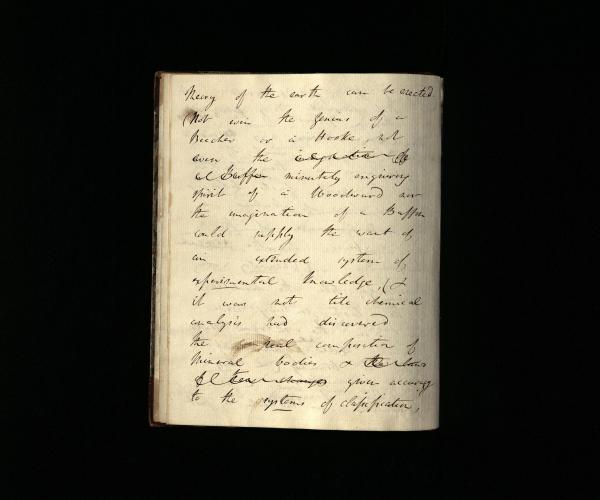 theory of the earth can be erected
(Not even the genius of a
Beccher or a Hooke, not
even the
minutely enquiring
spirit of a Woodward nor
the imagination of a Buffon
could supply the want of
an extended system of
experimental knowledge, (&
it was not till chemical
analysis had discovered
the real composition of
Mineral bodies & the laws
of their changes given accuracy
to the systems of classification,